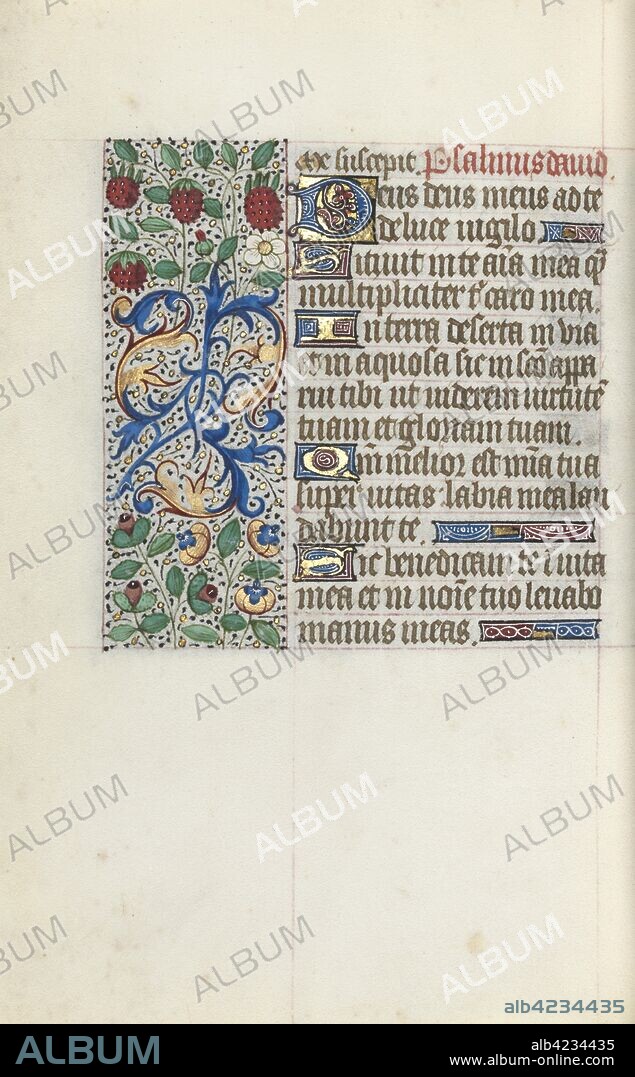 me suscepit. Psalmus dauid.
Deus deus meus ad te
de luce uigilo
Sitiuit in te aīa mea q̄
multipliciter t' caro mea.
In terra deserta in uia
et in aquosa sic in scō appa
rui tibi ut uiderem uirtutē
tuam et gloriam tuam.
Qm̄ melior est mīa tua
super uitas labia mea lau
dabunt te.
Sic benedicam te i uita
mea et in noīe tuo leuabo
manus meas.
alb4234435
ALBUM
alb4234435
www.album-online.com